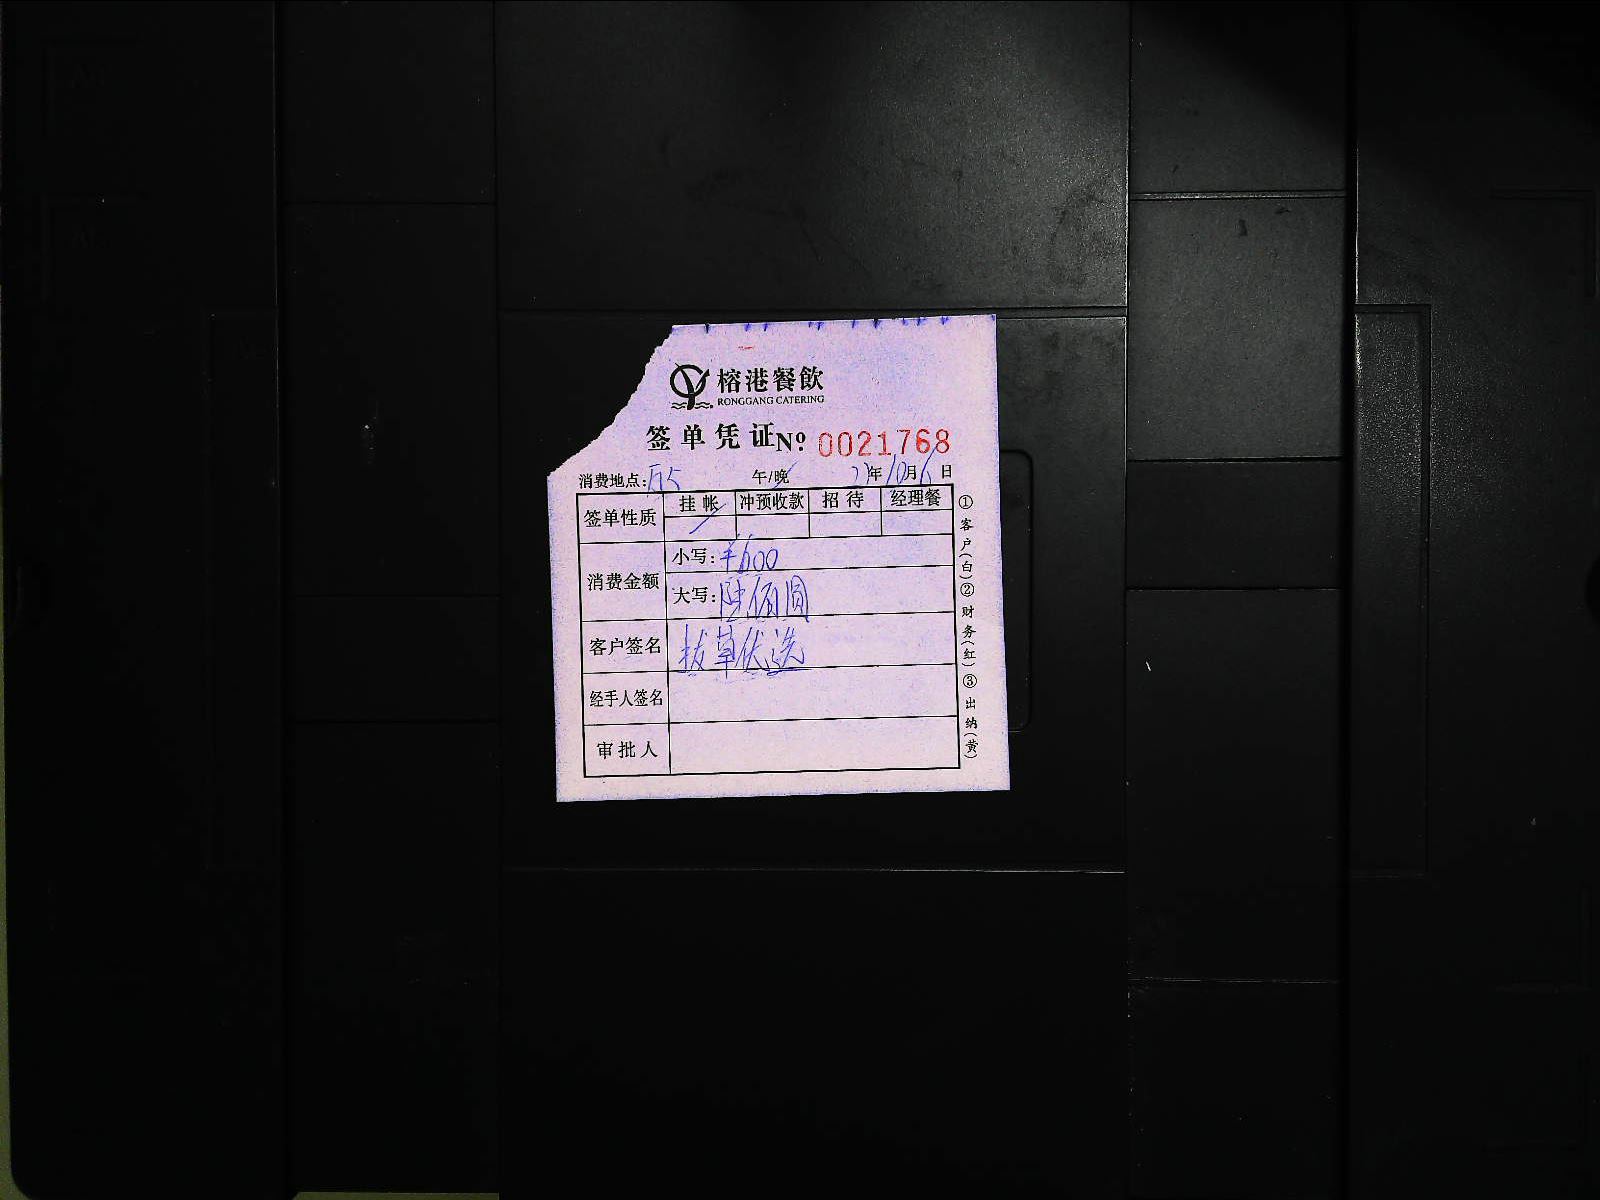 榕港餐飲
RONGGANG CATERING
签单凭证 №: 0021768
消费地点: 午/晚 年10月6日
签单性质 挂帐 冲预收款 招待 经理餐
消费金额
小写: ¥600
大写: 陆佰圆
客户签名 拔草优选
经手人签名
审批人
①客户(白)②财务(红)③出纳(黄)